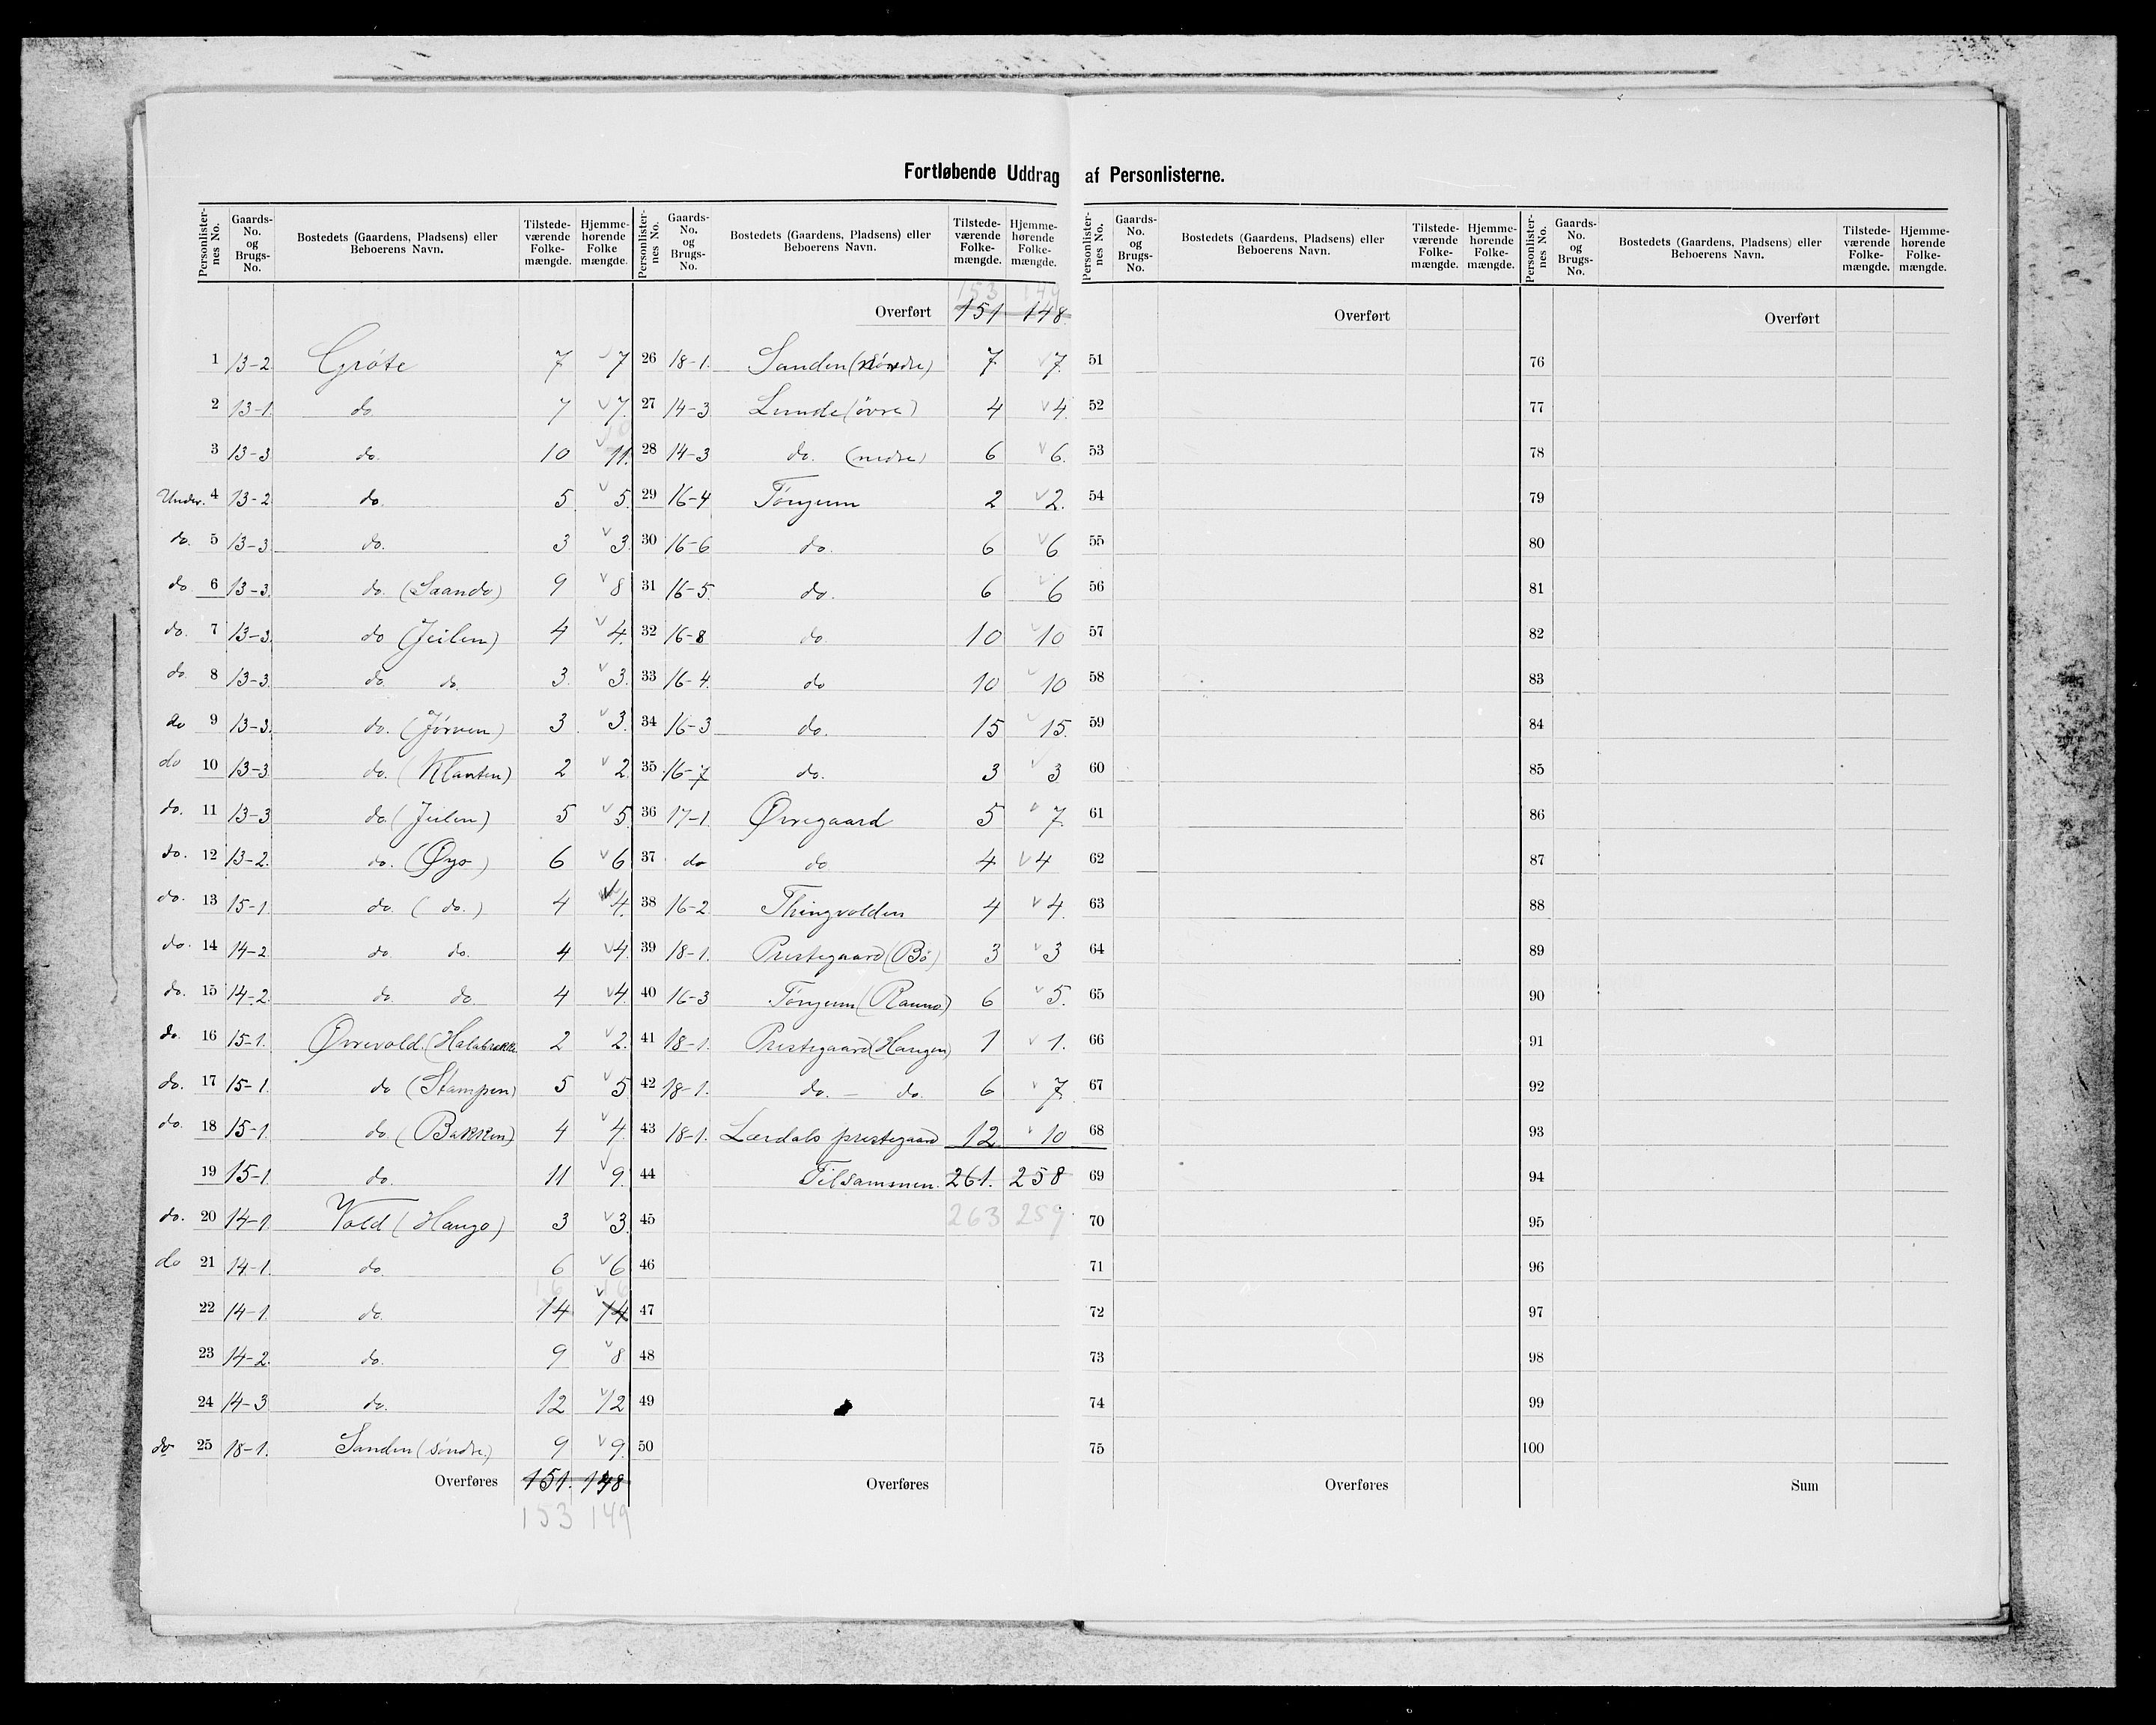 Fortløbende Uddrag af Personlisterne.
Personlisternes No. Gaards-No. og Brugs-No. Bostedets (Gaardens, Pladsens) eller Beboerens Navn. Tilstedeværende Folkemængde. Hjemmehørende Folkemængde.
1 13-2 Grøte 7 7
2 13-1. do 7 7.
3 13-3 do. 10 11.
Under. 4 13-2 do. 5 5.
do. 5 13-3. do. 3 3.
do 6 13-3. do. (Saande) 9 8
do. 7 13-3. do (Jeilen) 4 4.
do. 8 13-3. do. do. 3. 3.
do 9 13-3. do. (Jørven) 3. 3.
do 10 13-3. do. (Klanten) 2 2.
do. 11 13-3 do. (Jeilen) 5 5.
do. 12 13-2. do. (Øyo) 6 6
do. 13 15-1. do. (do.) 4 4.
do. 14 14-2. do. do. 4 4.
do. 15 14-2. do. do 4 4.
do. 16 15-1. Øvrevold. (Halabrække 2 2.
do. 17 15-1. do (Stampen) 5 5
do. 18 15-1. do. (Bakken) 4 4.
19 15-1 do. 11 9.
do. 20 14-1. Vold (Haugo) 3 3.
do 21 14-1. do. 6 6
16 16
22 14-1. do. 14 14
23 14-2. do. 9 8
24 14-3 do. 12 12
do 25 18-1. Sanden (søndre) 9 9.
Overføres 151. 148
153 149
153 149
Overført 151 148.
26 18-1. Sanden (nordre) 7. 7.
27 14-3 Lunde (øvre) 4 4.
28 14-3 do. (nedre) 6 6.
29 16-4 Tønjum 2 2.
30 16-6 do. 6 6
31 16-5 do. 6 6
32 16-8 do. 10 10
33 16-4. do 10 10
34 16-3 do. 15 15.
35 16-7 do. 3 3.
36 17-1. Øvregaard 5 7.
37 do do 4 4
38 16-2 Thingvolden 4 4.
39 18-1. Prestegaard (Bø) 3 3
40 16-3 Tønjum (Rauno) 6 5.
41 18-1. Prestegaard (Haugen) 1 1.
42 18-1. do. — do. 6 7.
43 18-1. Lærdals prestegaard 12 10
44 Tilsammen. 261. 258
45 263 259
46
47
48
49
50
Overføres
Personlisternes No. Gaards-No. og Brugs-No. Bostedets (Gaardens, Pladsens) eller Beboerens Navn. Tilstedeværende Folkemængde. Hjemmehørende Folkemængde.
Overført
51
52
53
54
55
56
57
58
59
60
61
62
63
64
65
66
67
68
69
70
71
72
73
74
75
Overføres
Overført
76
77
78
79
80
81
82
83
84
85
86
87
88
89
90
91
92
93
94
95
96
97
98
99
100
Sum